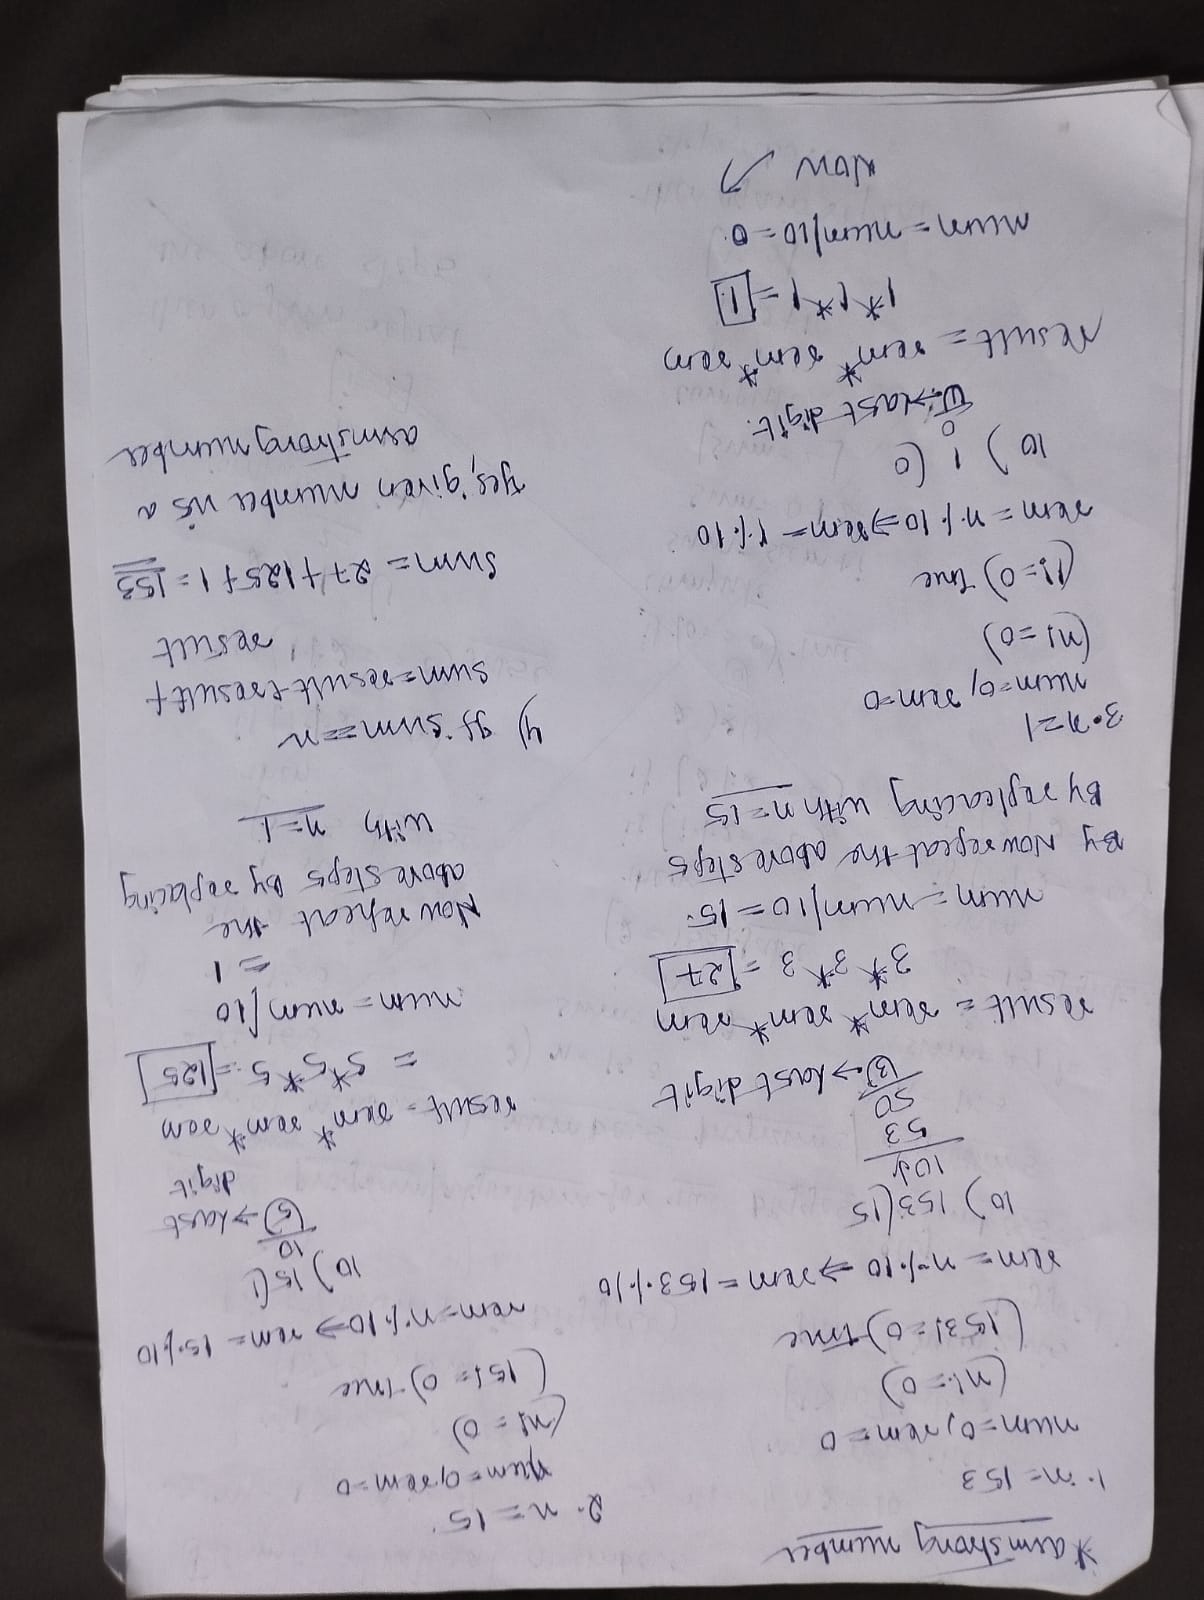 * armstrong number
1. n= 153
num=0, rem=0
(n!=0)
(153!=0) true
rem= n%10 ⇒ rem = 153%10
10) 153(15
10↓
53
50
(3) → last digit
result = rem* rem* rem
3* 3* 3 = 27
num = num/10 = 15.
By Now repeat the above steps
By repleacing with n=15
2. n=15
num=0, rem=0
(n!=0)
(15!=0) true
rem=n%10 ⇒ rem= 15%10
10) 15(1
10
(5) → last
digit
result= rem* rem* rem
= 5*5*5 = 125
num=num/10
=1
Now repeat the
above steps by replacing
with n=1
3. n=1
num=0, rem=0
(n!=0)
(1!=0) true
rem=n%10 ⇒ rem= 1%10
10) 1 (0
0
(1) → last digit.
result= rem* rem* rem
1*1*1=1.
num=num/10=0.
Now ↗
4) If sum==n
sum=result+result+
result
sum= 27+125+1=153
Yes, given number is a
armstrong number